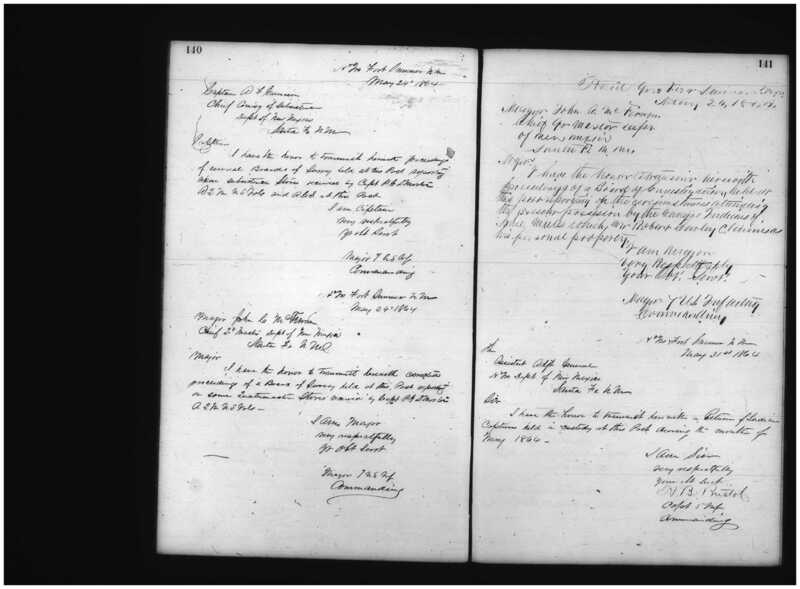 140
Hd Qrs Fort Sumner N M
May 24th 1864
Captain A F
Chief Comsy of Subsistence
Dept of New Mexico
Santa Fe N M
Captain
I have the honor to transmit herewith proceedings
of several Boards of Survey held at this Post
upon subsistence Stores received by Capt
and at this Post
I am Captain
very respectfully
yr obt Servt
Major 7 U S Inf
Commanding
Hd Qrs Fort Sumner N M
May 24th 1864
Major John C Mc
Chief Qr Master Dept of New Mexico
Santa Fe N M
Major
I have the honor to transmit herewith
proceedings of a Board of Survey held at this Post
on some Quartermaster Stores received by Capt
I am Major
very respectfully
yr obt Servt
Major 7 U S Inf
Commanding
141
Head Qrs Fort Sumner
May 24, 1864
Major John C. Mc
Chief Qr Master
of New Mexico
Santa Fe N. M.
Major
I have the honor to transmit herewith
proceedings of a Board of held at
this post on the circumstances attending
the possession by the Navajo Indians of
Mules which Mr Robert claims as
his personal property
I am Major
Very Respectfully
Your Obt. Servt.
Major 7 U.S. Infantry
Commanding
Hd Qrs Fort Sumner N M
May 31st 1864
The
Assistant Adjt General
Hd Qrs Dept of New Mexico
Santa Fe N M
Sir
I have the honor to transmit herewith a Return of Indian
Captives held in custody at this Post during the month of
May 1864
I am Sir
very respectfully
your obt Servt
H. B. Bristol
Capt 5 Inf
Commanding